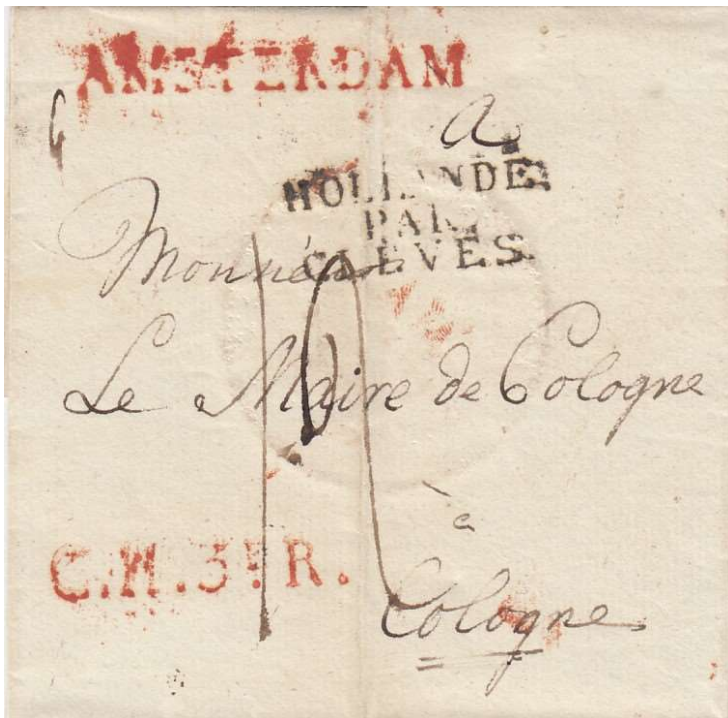 AMSTERDAM
a
HOLLANDE
PAR
CLEVES
Monsieur
Le Maire de Cologne
à
C.H.3E R.
Cologne